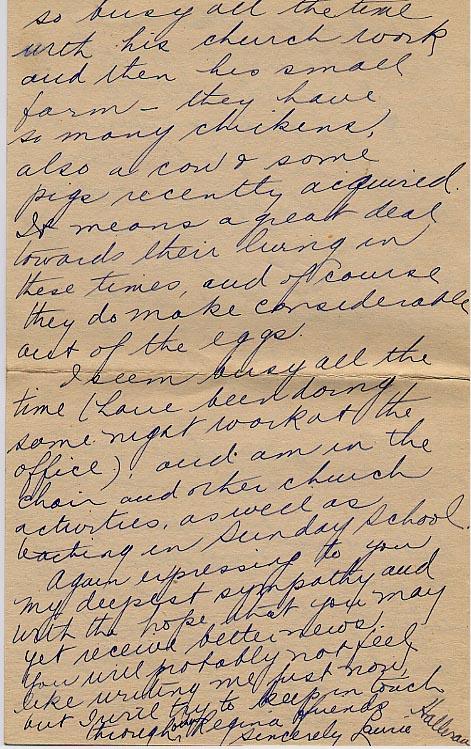 so busy all the time
with his church work
and then his small
farm - they have
so many chickens,
also a cow & some
pigs recently acquired.
It means a great deal
towards their living in
these times, and of course
they do make considerable
out of the eggs.
I seem busy all the
time (have been doing
some night work at the
office), and am in the
choir and other church
activities, as well as
teaching in Sunday School.
Again expressing to you
my deepest sympathy and
with the hope that you may
yet receive better news.
You will probably not feel
like writing me just now,
but I will try to keep in touch
through Regina friends
Sincerely Laurie Halloran